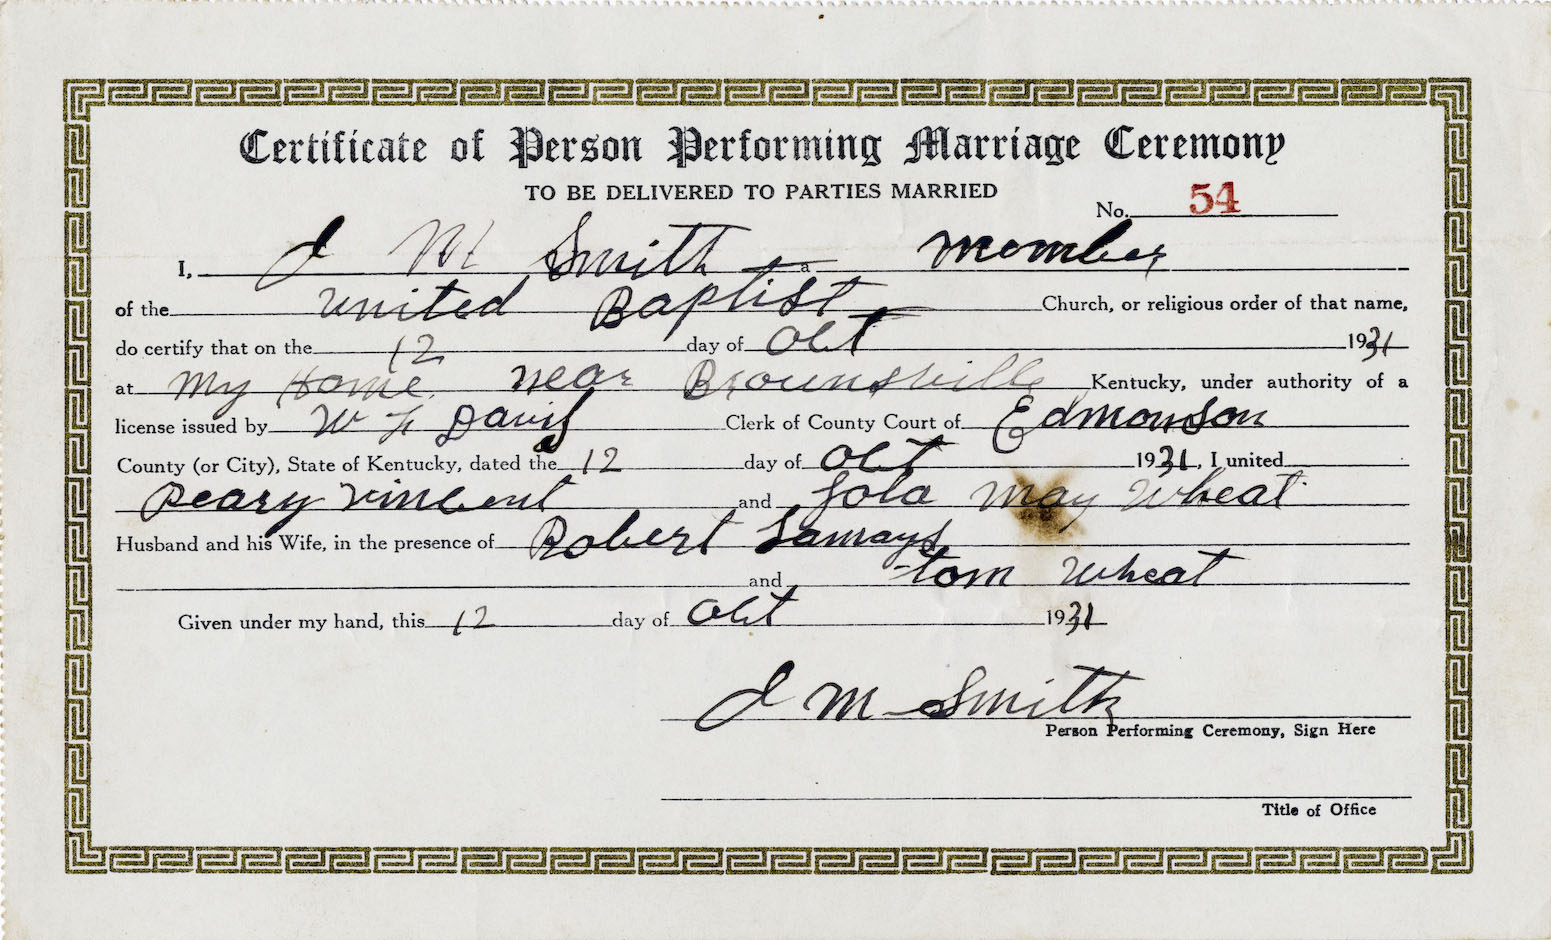 Certificate of Person Performing Marriage Ceremony
TO BE DELIVERED TO PARTIES MARRIED
No. 54
I, J M Smith a Member
of the United Baptist Church, or religious order of that name,
do certify that on the 12 day of Oct 1931
at My Home near Brownsville Kentucky, under authority of a
license issued by W Davis Clerk of County Court of Edmonson
County (or City), State of Kentucky, dated the 12 day of Oct 1931, I united
Peary Vincent and May Wheat
Husband and his Wife, in the presence of Robert
and tom Wheat
Given under my hand, this 12 day of Oct 1931
J M Smith
Person Performing Ceremony, Sign Here
Title of Office